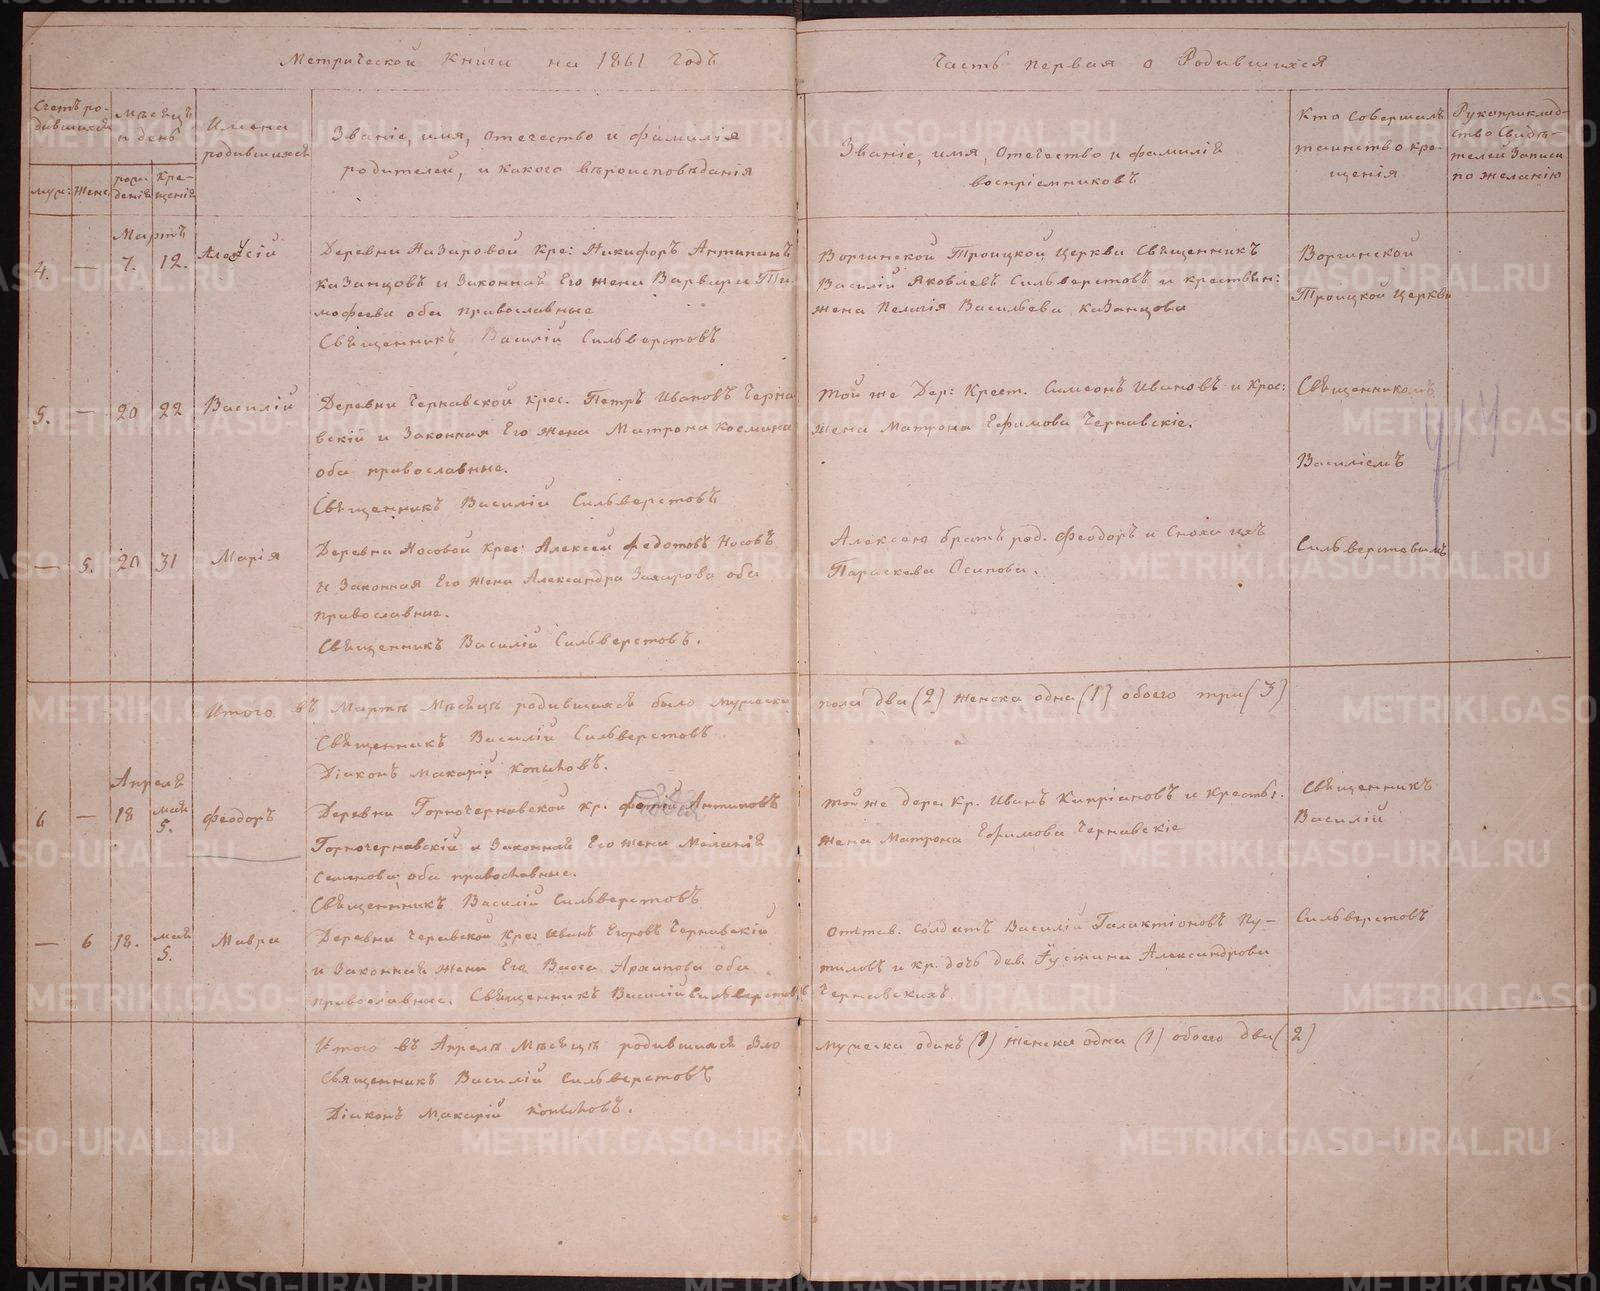 Метрической Книги на 1861 Годъ
Часть первая о Родившихся
Счетъ ро-
дившихся
муж:
жене
Мѣсяцъ
и день
рож-
денія
кре-
щенія
Имена
родившихся
Званіе, имя, отечество и фамилія
родителей, и какого вѣроисповѣданія
Званіе, имя, Отечество и фамилія
воспріемниковъ
Кто Совершалъ
таинство кре-
щенія
Рукоприклад-
ство Свидѣ-
телей Записи
по желанію
Мартъ
4. — 7. 12. Алексій
Деревни Назаровой Кре: Никифоръ Антипинъ
Казанцовъ и Законная Его жена Варвара Ти
мофеева оба православные
Священникъ Василій Сильверстовъ
Троицкой Церкви Священникъ
Василій Яковлевъ Сильверстовъ и крестьян:
жена Пелагія Васильева Казанцова
Троицкой Церкви
5. — 20 22 Василій
Деревни Чернавской Крес. Петръ Ивановъ Черна
вскій и Законная Его Жена Матрона Космина
оба православные.
Священникъ Василій Сильверстовъ
Той же Дер: Крест. Симеонъ Ивановъ и Крес:
жена Матрона Ефимова Чернавскіе.
Священникомъ
Василіемъ
— 5. 20 31 Марія
Деревни Носовой Крес: Алексей Федотовъ Носовъ
и Законная Его Жена Александра Захарова оба
православные.
Священникъ Василій Сильверстовъ.
Алексею братъ род. Феодоръ и Сноха ихъ
Параскева Осипова.
Сильверстовымъ
Итого въ Мартѣ Мѣсяцѣ родившихся было мужеска
пола два (2) женска одна (1) обоего три (3)
Священникъ Василій Сильверстовъ
Діаконъ Макарій Копыловъ.
Апрель
6 — 18 мая 5. Феодоръ
Деревни Горночернавской кр. Антиповъ
Горночернавскій и Законная Его жена Маланія
Семенова; оба православные.
Священникъ Василій Сильверстовъ
Той же дере. Кр. Иванъ Кипріановъ и Кресть:
жена Матрона Ефимова Чернавскіе
Священникъ
Василій
— 6 18. мая 5. Мавра
Деревни Черавской Кре: Иванъ Егоровъ Чернавскій
и Законная Жена Его Васса Архипова оба
православные. Священникъ Василій Сильверстовъ
отстав. Солдатъ Василій Галактіоновъ Пу-
тиловъ и кр. дочь дев. Устина Александрова
Чернавскихъ.
Сильверстовъ
Итого въ Апрелѣ Мѣсяцѣ родившихся Было
мужеска одинъ (1) женска одна (1) обоего два (2)
Священникъ Василій Сильверстовъ
Діаконъ Макарій Копыловъ.
METRIKI.GASO-URAL.RU